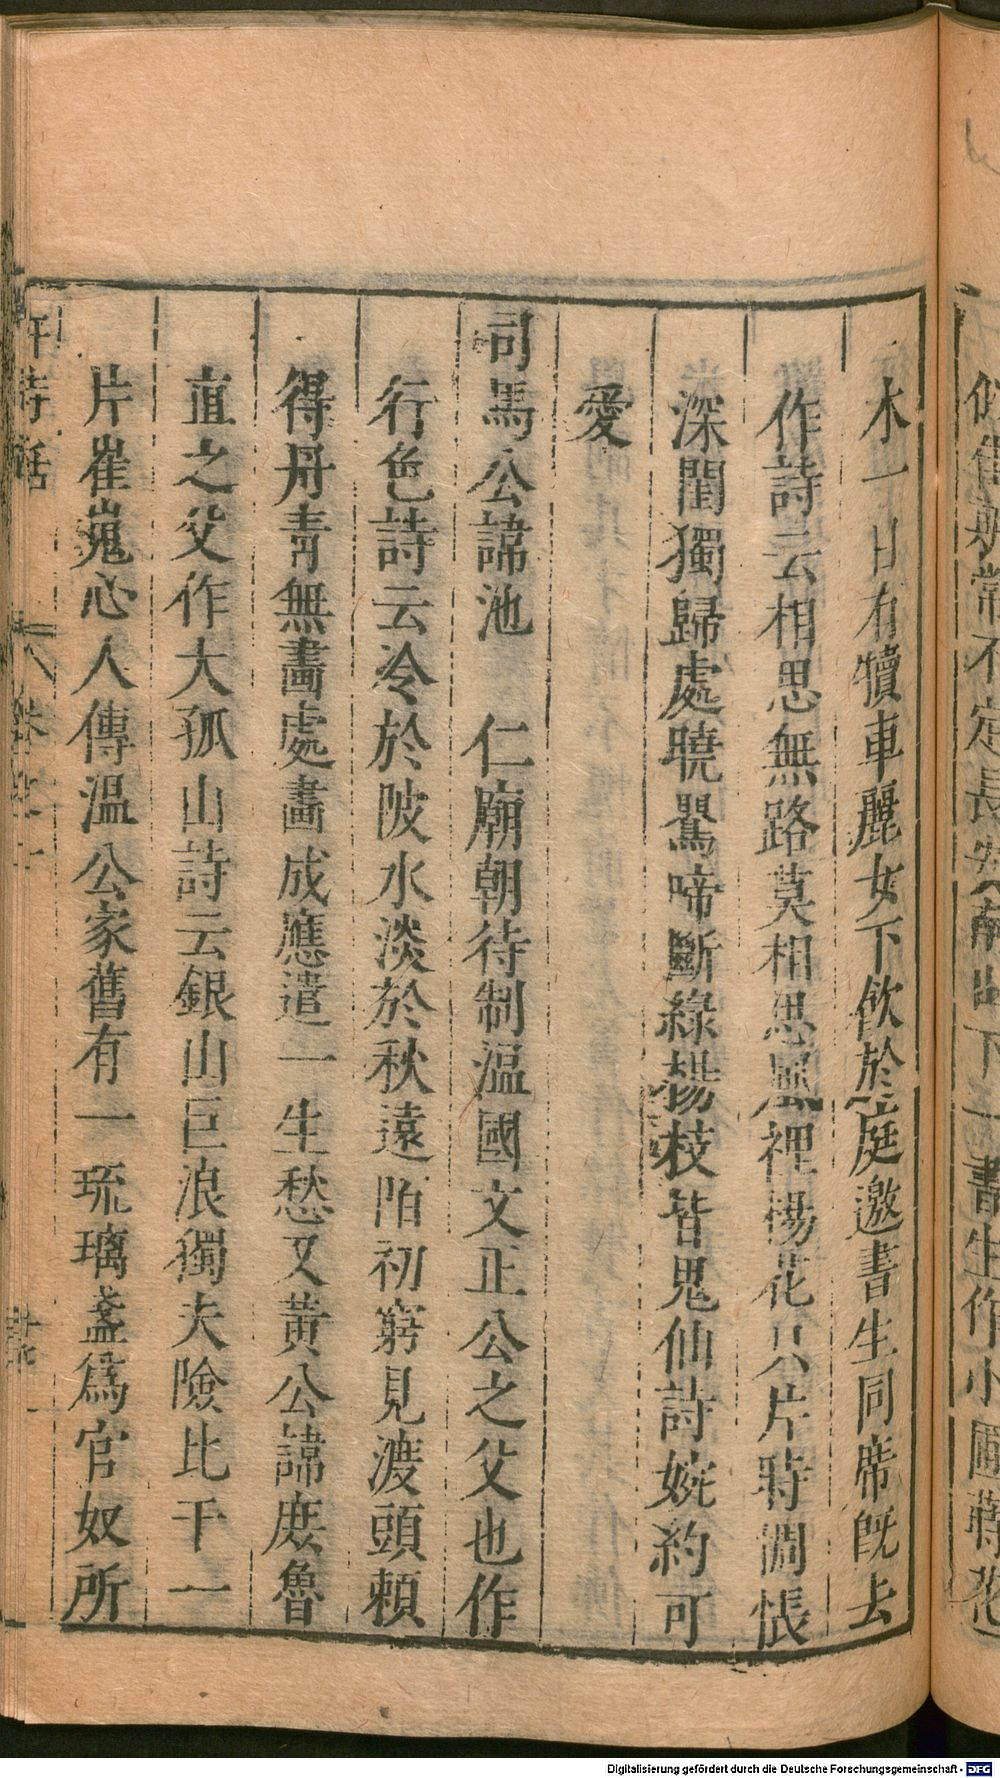 木一日有犢車麗女下飲於庭邀書生同席既去
作詩云相思無路莫相思風裡楊花只片時惆悵
深閨獨歸處曉鸎啼斷綠楊枝皆鬼仙詩婉約可
愛
司馬公諱池　仁廟朝待制溫國文正公之父也作
行色詩云冷於陂水淡於秋遠陌初窮見渡頭賴
得丹青無畫處畫成應遣一生愁又黃公諱庶魯
直之父作大孤山詩云銀山巨浪獨夫險比干一
片崔嵬心人傳溫公家舊有一琉璃盞爲官奴所
許詩話
Digitalisierung gefördert durch die Deutsche Forschungsgemeinschaft - DFG